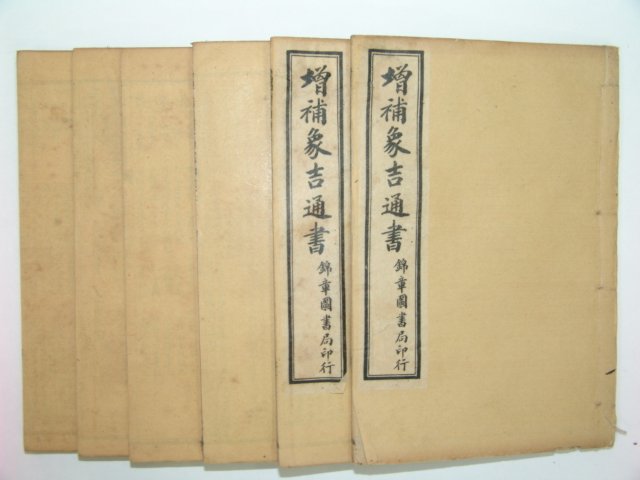 增補象吉通書
錦章圖書局印行
增補象吉通書
錦章圖書局印行